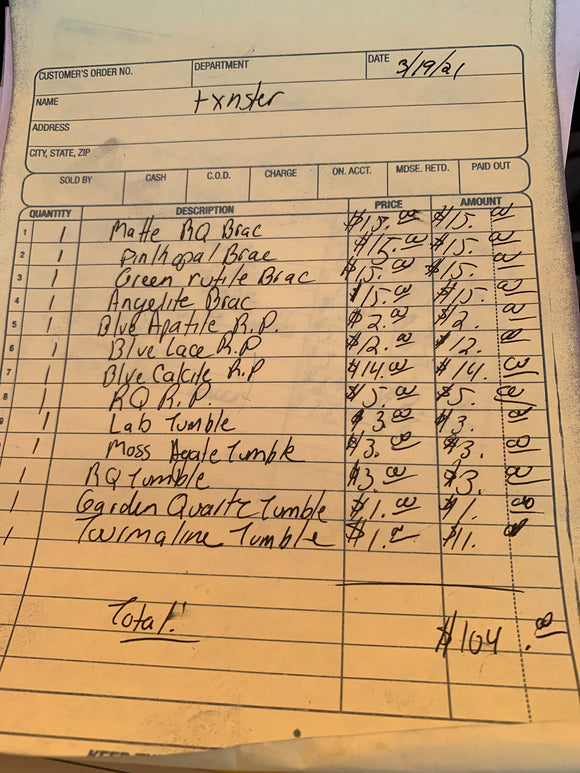 CUSTOMER'S ORDER NO. DEPARTMENT DATE 3/19/21
NAME txnster
ADDRESS
CITY, STATE, ZIP
SOLD BY CASH C.O.D. CHARGE ON. ACCT. MDSE. RETD. PAID OUT
QUANTITY DESCRIPTION PRICE AMOUNT
1 1 Matte RQ Brac $15.00 $15.00
2 1 Pink opal Brac $15.00 $15.00
3 1 Green rutile Brac $15.00 $15.00
4 1 Angelite Brac $15.00 $15.00
5 1 Blue Apatite R.P. $2.00 $2.00
6 1 Blue Lace R.P $12.00 $12.00
7 1 Blue Calcite R.P $14.00 $14.00
8 1 RQ R.P $5.00 $5.00
1 Lab Tumble $3.00 $3.00
1 Moss Agate Tumble $3.00 $3.00
1 RQ Tumble $3.00 $3.00
1 Garden Quartz Tumble $1.00 $1.00
1 Tourmaline Tumble $1.00 $1.00
Total: $104.00